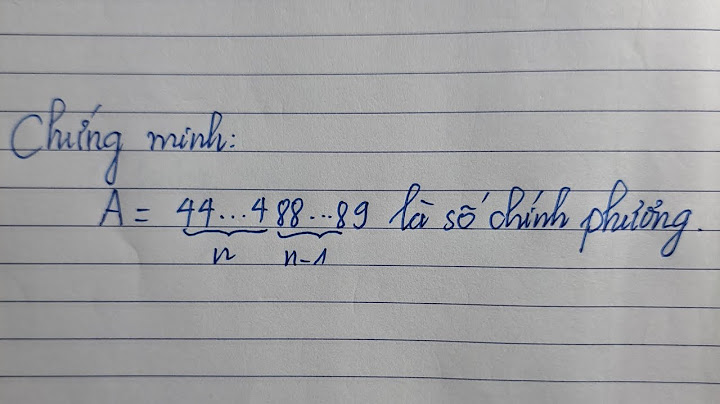 Chứng minh:
A = 44...4 88...89 là số chính phương.
n n-1